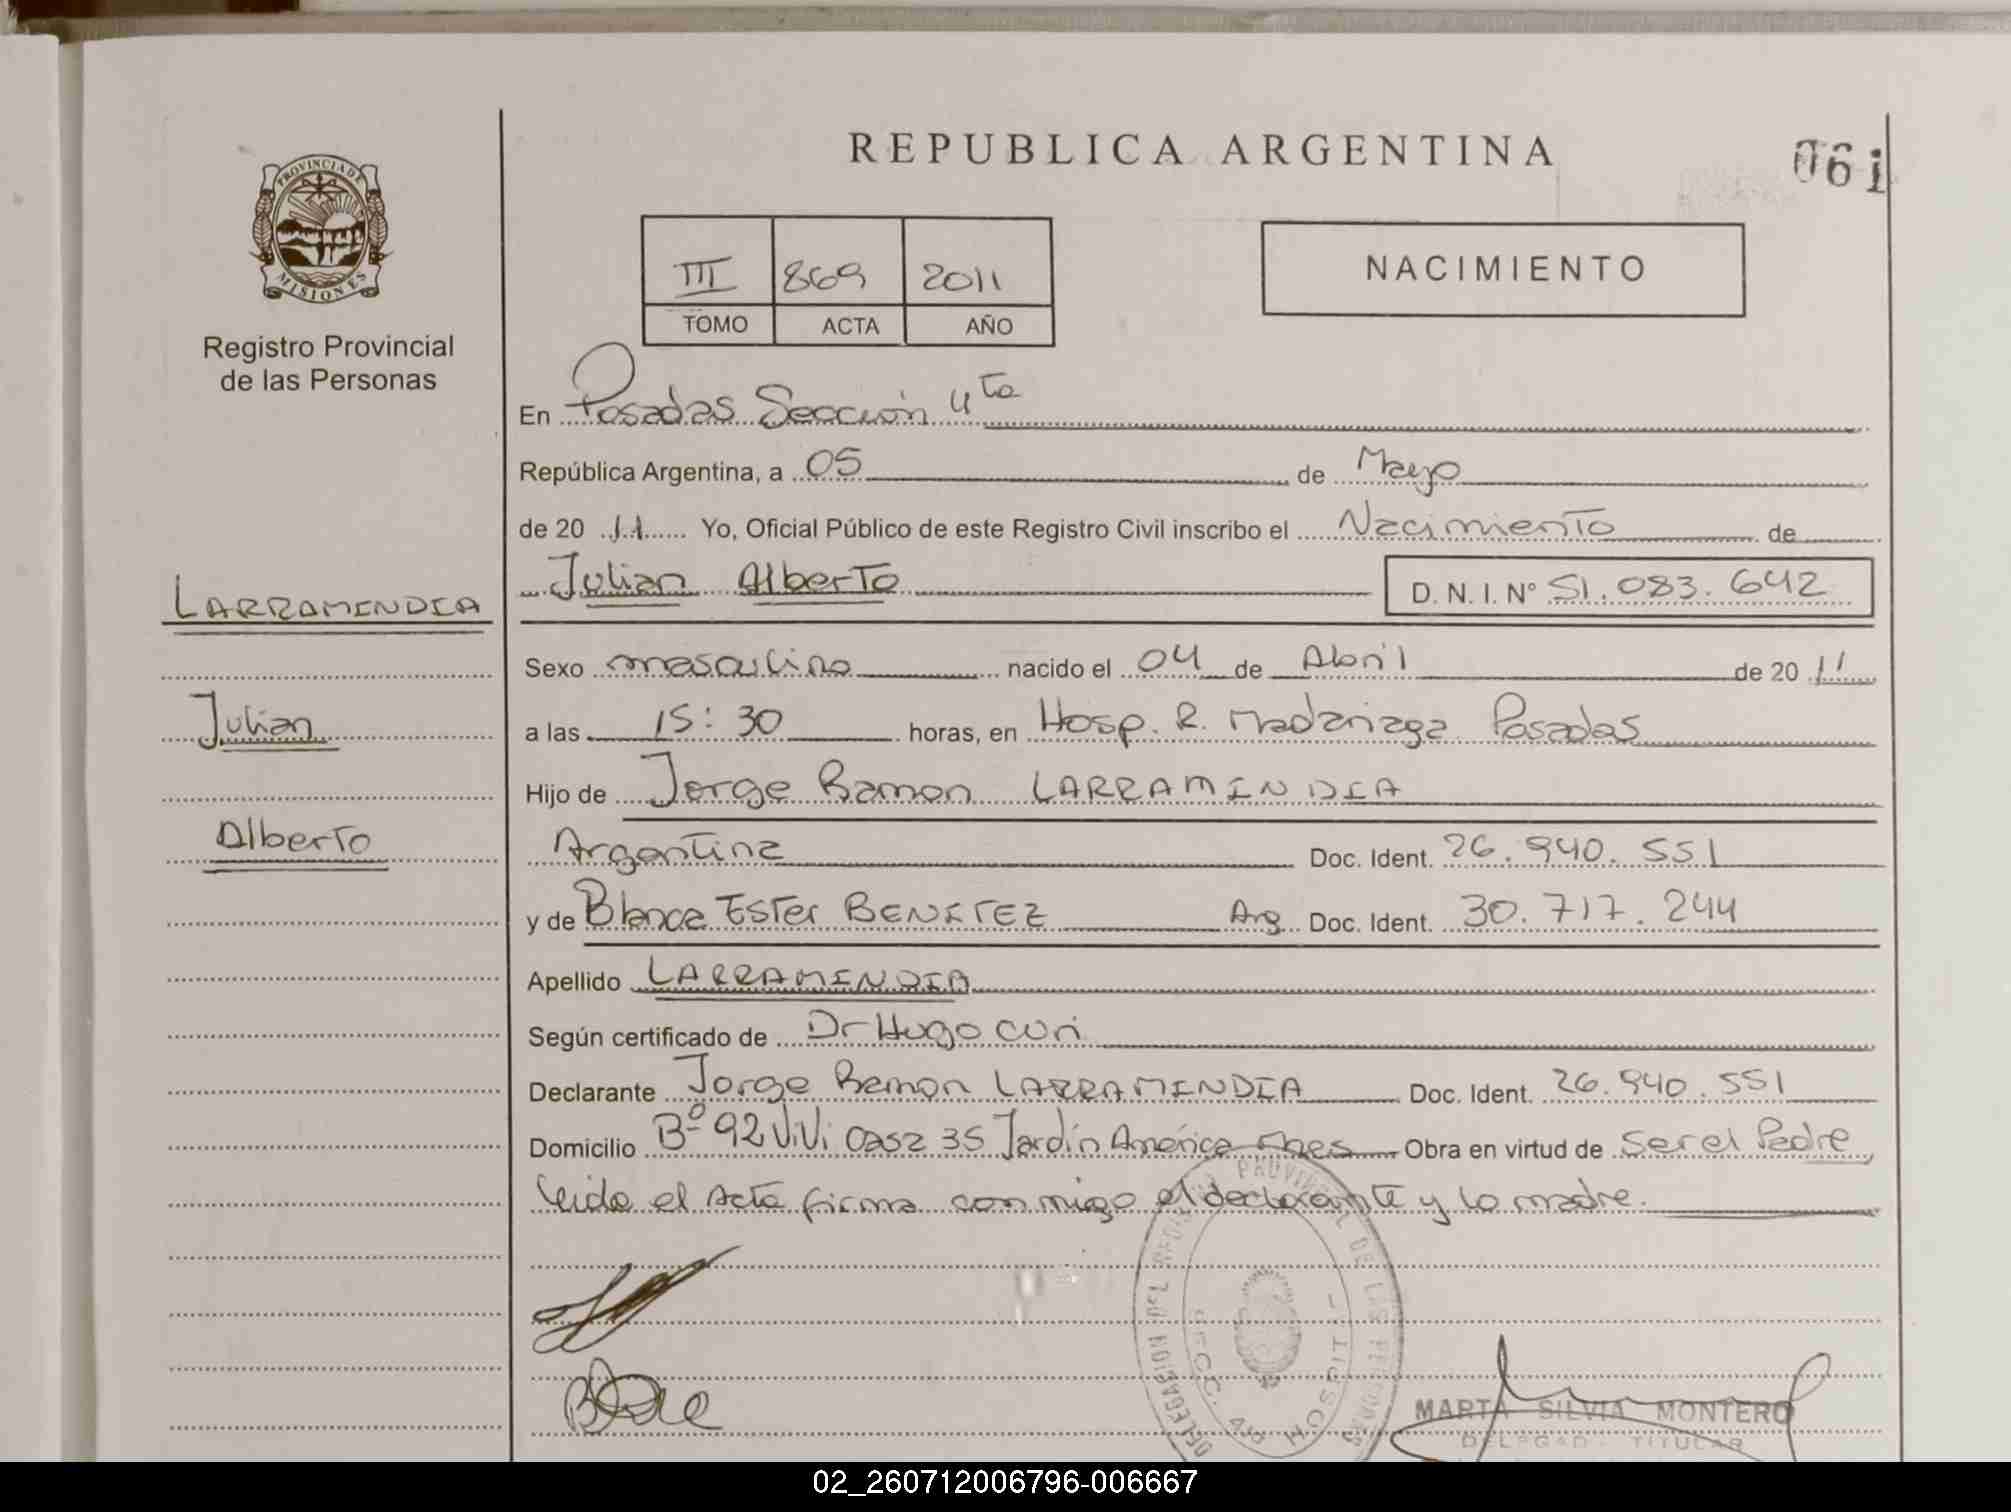 REPUBLICA ARGENTINA
061
PROVINCIA DE
MISIONES
Registro Provincial
de las Personas
III 869 2011
TOMO ACTA AÑO
NACIMIENTO
En Posadas Sección 4ta
República Argentina, a 05 de Mayo
de 20 11 Yo, Oficial Público de este Registro Civil inscribo el Nacimiento de
Julian Alberto D. N. I. Nº 51.083.642
LARRAMENDIA
Julian
Alberto
Sexo masculino nacido el 04 de Abril de 20 11
a las 15:30 horas, en Hosp. R. Madariaga Posadas
Hijo de Jorge Ramon LARRAMENDIA
Argentina Doc. Ident. 26.940.551
y de Blanca Ester BENITEZ Arg. Doc. Ident. 30.717.244
Apellido LARRAMENDIA
Según certificado de Dr Hugo Curi
Declarante Jorge Ramon LARRAMENDIA Doc. Ident. 26.940.551
Domicilio Bº 92 ViVi Casa 35 Jardín América Mnes Obra en virtud de Ser el Padre
leida el Acta firma conmigo el declarante y la madre.
DELEGACION DEL REGISTRO PROVINCIAL DE LAS PERSONAS
SECC. 4ta HOSPITAL
MARTA SILVIA MONTERO
DELEGADA TITULAR
02_260712006796-006667